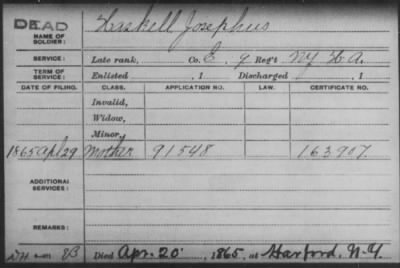 DEAD Haskell Josephus
NAME OF SOLDIER:
SERVICE: Late rank, Co. E, 9 Reg't NY H A.
TERM OF SERVICE: Enlisted , 1 Discharged , 1
DATE OF FILING. CLASS. APPLICATION NO. LAW. CERTIFICATE NO.
Invalid,
Widow,
Minor,
1865 Apl 29 Mother 91548 163907.
ADDITIONAL SERVICES:
REMARKS:
Died Apr. 20 1865, at Harford, N.Y.